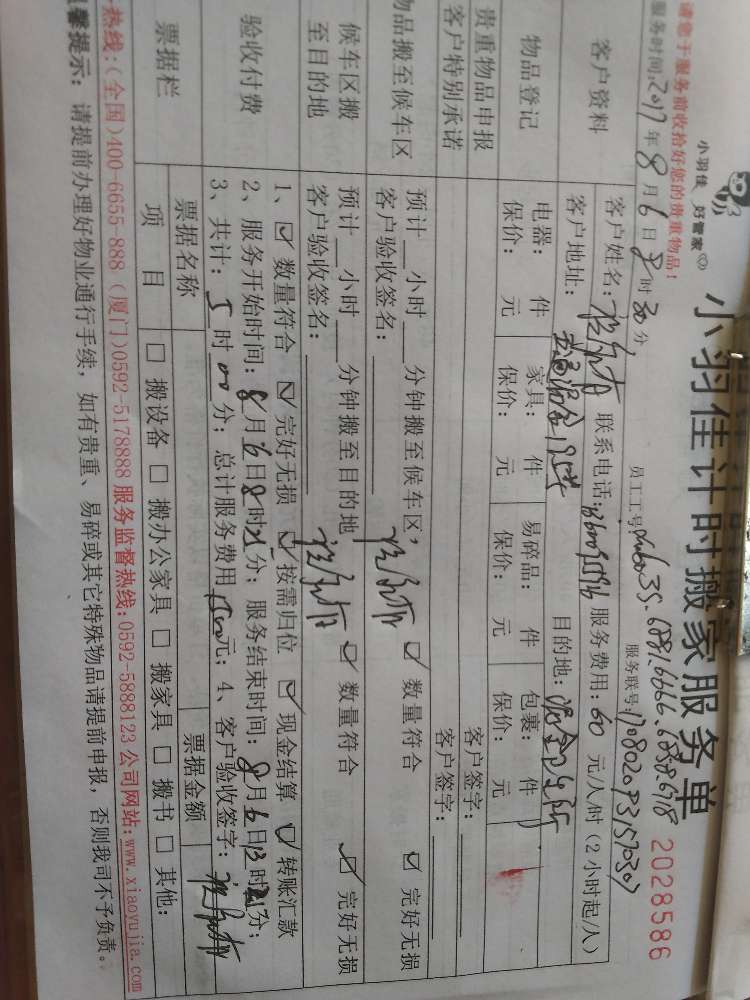 小羽佳 好管家
小羽佳计时搬家服务单
2028586
请您于服务前收拾好您的贵重物品!
服务时间:2017年8月6日8时30分
员工工号:
服务联号:
客户资料
客户姓名: 联系电话: 服务费用:60元/人/时(2小时起/人)
客户地址: 目的地:
物品登记
电器: 件 家具: 件 易碎品: 件 包裹: 件
保价: 元 保价: 元 保价: 元 保价: 元
贵重物品申报
客户签字:
客户特别承诺
客户签字:
物品搬至候车区
预计 小时 分钟搬至候车区, ☑ 数量符合 ☑ 完好无损
客户验收签名:
候车区搬至目的地
预计 小时 分钟搬至目的地 ☑ 数量符合 ☑ 完好无损
客户验收签名:
验收付费
1、☑ 数量符合 ☑ 完好无损 ☑ 按需归位 ☑ 现金结算 ☑ 转账汇款
2、服务开始时间:8月6日8时21分;服务结束时间:8月6日13时21分;
3、共计:5时00分;总计服务费用1500元;4、客户验收签字:
票据栏
票据名称 票据金额
项目 □ 搬设备 □ 搬办公家具 □ 搬家具 □ 搬书 □ 其他:
热线:(全国)400-6655-888 (厦门)0592-5178888 服务监督热线:0592-5888123 公司网站:www.xiaoyujia.com
馨提示:请提前办理好物业通行手续,如有贵重、易碎或其它特殊物品请提前申报,否则我司不予负责。